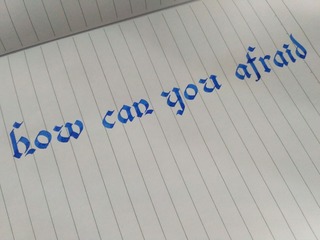 how can you afraid